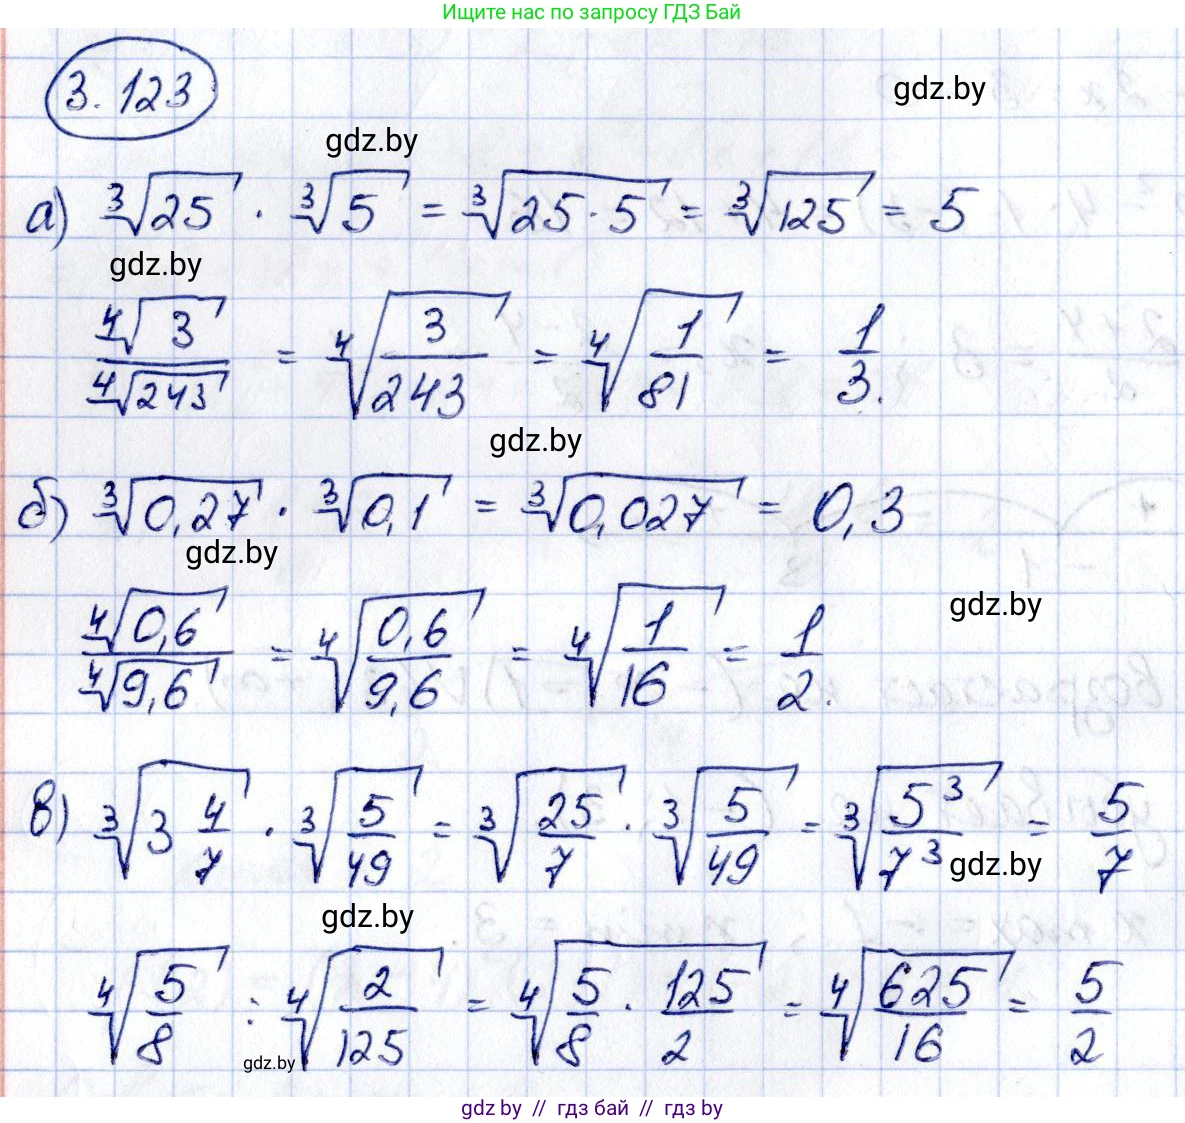 Ищите нас по запросу ГДЗ Бай
3.123
gdz.by
gdz.by
а) ∛25 · ∛5 = ∛(25·5) = ∛125 = 5
gdz.by
∜3/∜243 = ∜(3/243) = ∜(1/81) = 1/3.
gdz.by
б) ∛0,27 · ∛0,1 = ∛0,027 = 0,3
gdz.by
gdz.by
∜0,6/∜9,6 = ∜(0,6/9,6) = ∜(1/16) = 1/2.
в) ∛(3 4/7) · ∛(5/49) = ∛(25/7) · ∛(5/49) = ∛(5³/7³) = 5/7
gdz.by
gdz.by
∜(5/8) : ∜(2/125) = ∜(5/8 · 125/2) = ∜(625/16) = 5/2
gdz.by
gdz by // гдз бай // гдз by